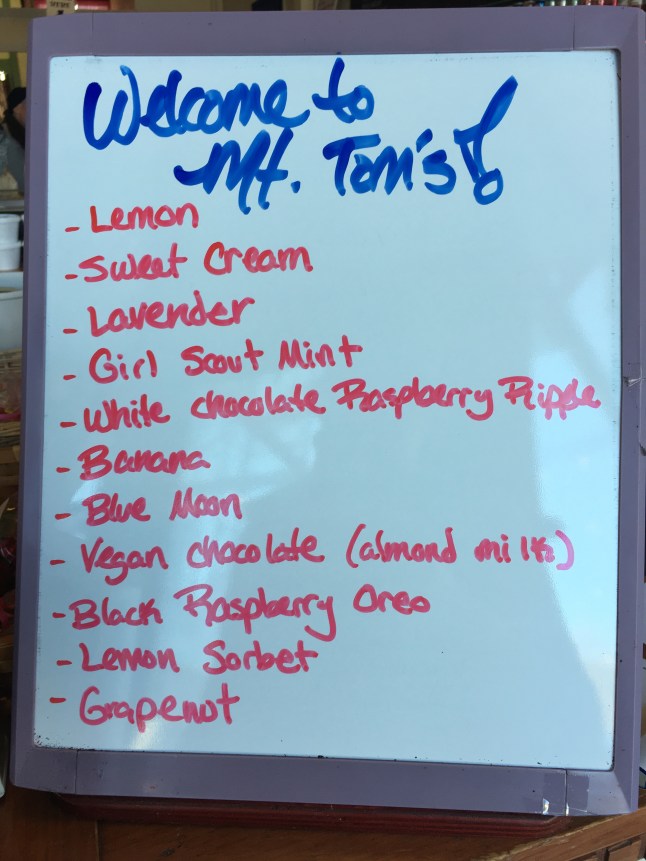 Welcome to
Mt. Tom's!
- Lemon
- Sweet Cream
- Lavender
- Girl Scout Mint
- White chocolate Raspberry Ripple
- Banana
- Blue Moon
- Vegan chocolate (almond milk)
- Black Raspberry Oreo
- Lemon Sorbet
- Grapenut